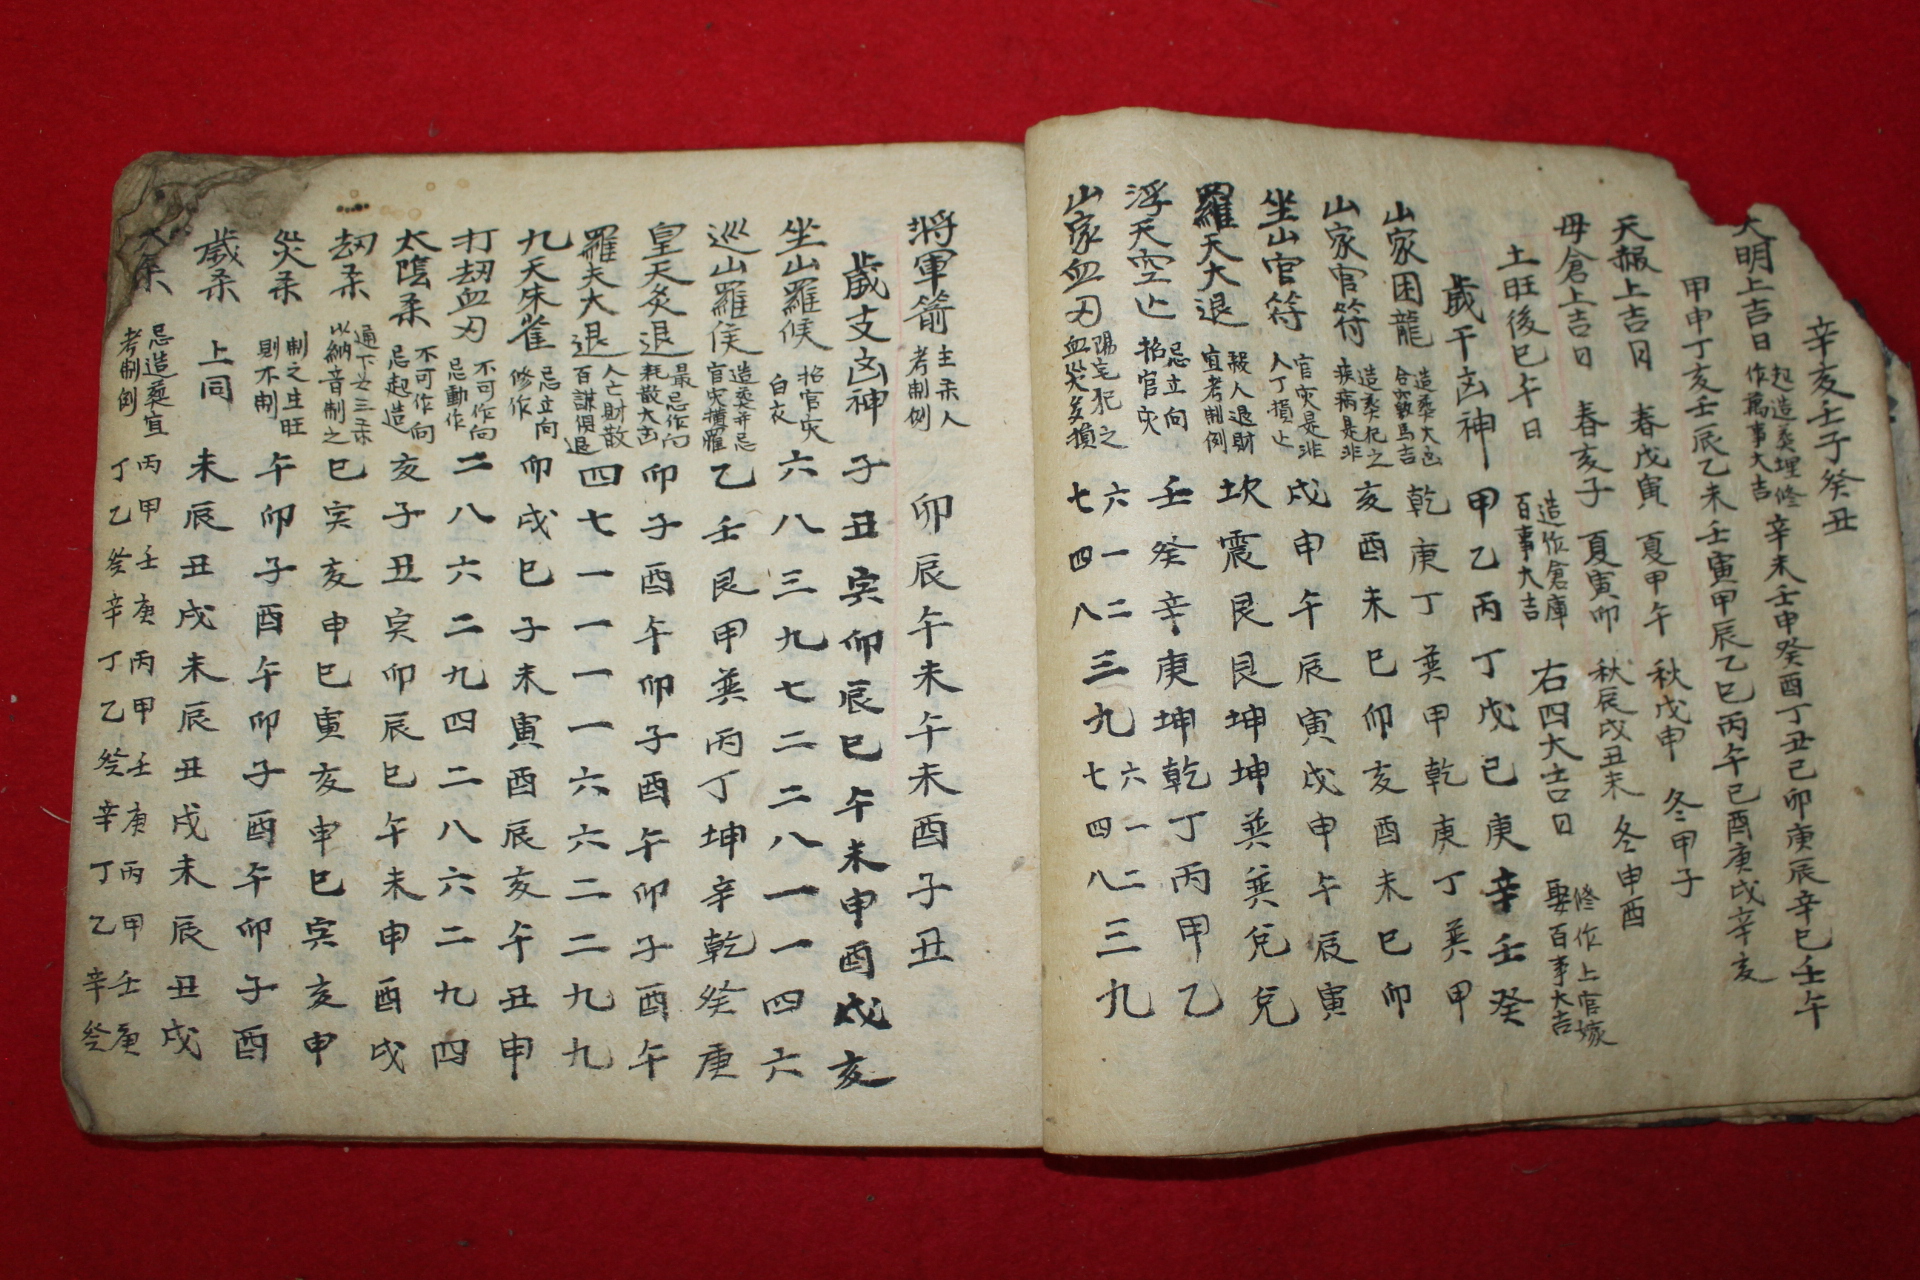 辛亥壬子癸丑
大明上吉日 起造葬埋修作萬事大吉 辛未壬申癸酉丁丑己卯庚辰辛巳壬午
甲申丁亥壬辰乙未壬寅甲辰乙巳丙午己酉庚戌辛亥
天赧上吉日 春戊寅 夏甲午 秋戊申 冬甲子
母倉上吉日 春亥子 夏寅卯 秋辰戌丑未 冬申酉
土旺後巳午日 造作倉庫百事大吉 右四大吉日 修作上官嫁娶百事大吉
歲干凶神 甲乙丙丁戊己庚辛壬癸
山家困龍 造葬大凶合馬吉 乾庚丁巽甲乾庚丁巽甲
山家官符 造葬犯之疾病是非 亥酉未巳卯亥酉未巳卯
坐山官符 官灾是非人丁損亡 戌申午辰寅戌申午辰寅
羅天大退 殺人退財宜考制例 坎震艮艮坤坤巽巽兌兌
浮天空亡 忌立向招官灾 壬癸辛庚坤乾丁丙甲乙
山家血刃 陽宅犯之血灾多損 六七 一四 二八 三 九 六七 一四 二八 三 九
將軍箭 主杀人考制例 卯辰午未午未酉子丑
歲支凶神 子丑寅卯辰巳午未申酉戌亥
坐山羅候 招官灾白衣 六八三九七二二八一一四六
巡山羅侯 造葬并忌官灾 乙壬艮甲巽丙丁坤辛乾癸庚
皇天灸退 最忌作向耗散大凶 卯子酉午卯子酉午卯子酉午
羅天大退 人亡財散百謀俱退 四七一一一一六六二二九九
九天朱雀 忌立向修作 卯戌巳子未寅酉辰亥午丑申
打劫血刃 不可作向忌動作 二八六二九四二八六二九四
太陰杀 不可作向忌起造 亥子丑寅卯辰巳午未申酉戌
劫杀 通下廿三杀以納音制之 巳寅亥申巳寅亥申巳寅亥申
灾杀 制之生旺則不制 午卯子酉午卯子酉午卯子酉
歲杀 上同 未辰丑戌未辰丑戌未辰丑戌
大杀 忌造葬宜考制例 丙丁 甲乙 壬癸 庚辛 丙丁 甲乙 壬癸 庚辛 丙丁 甲乙 壬辛 庚癸